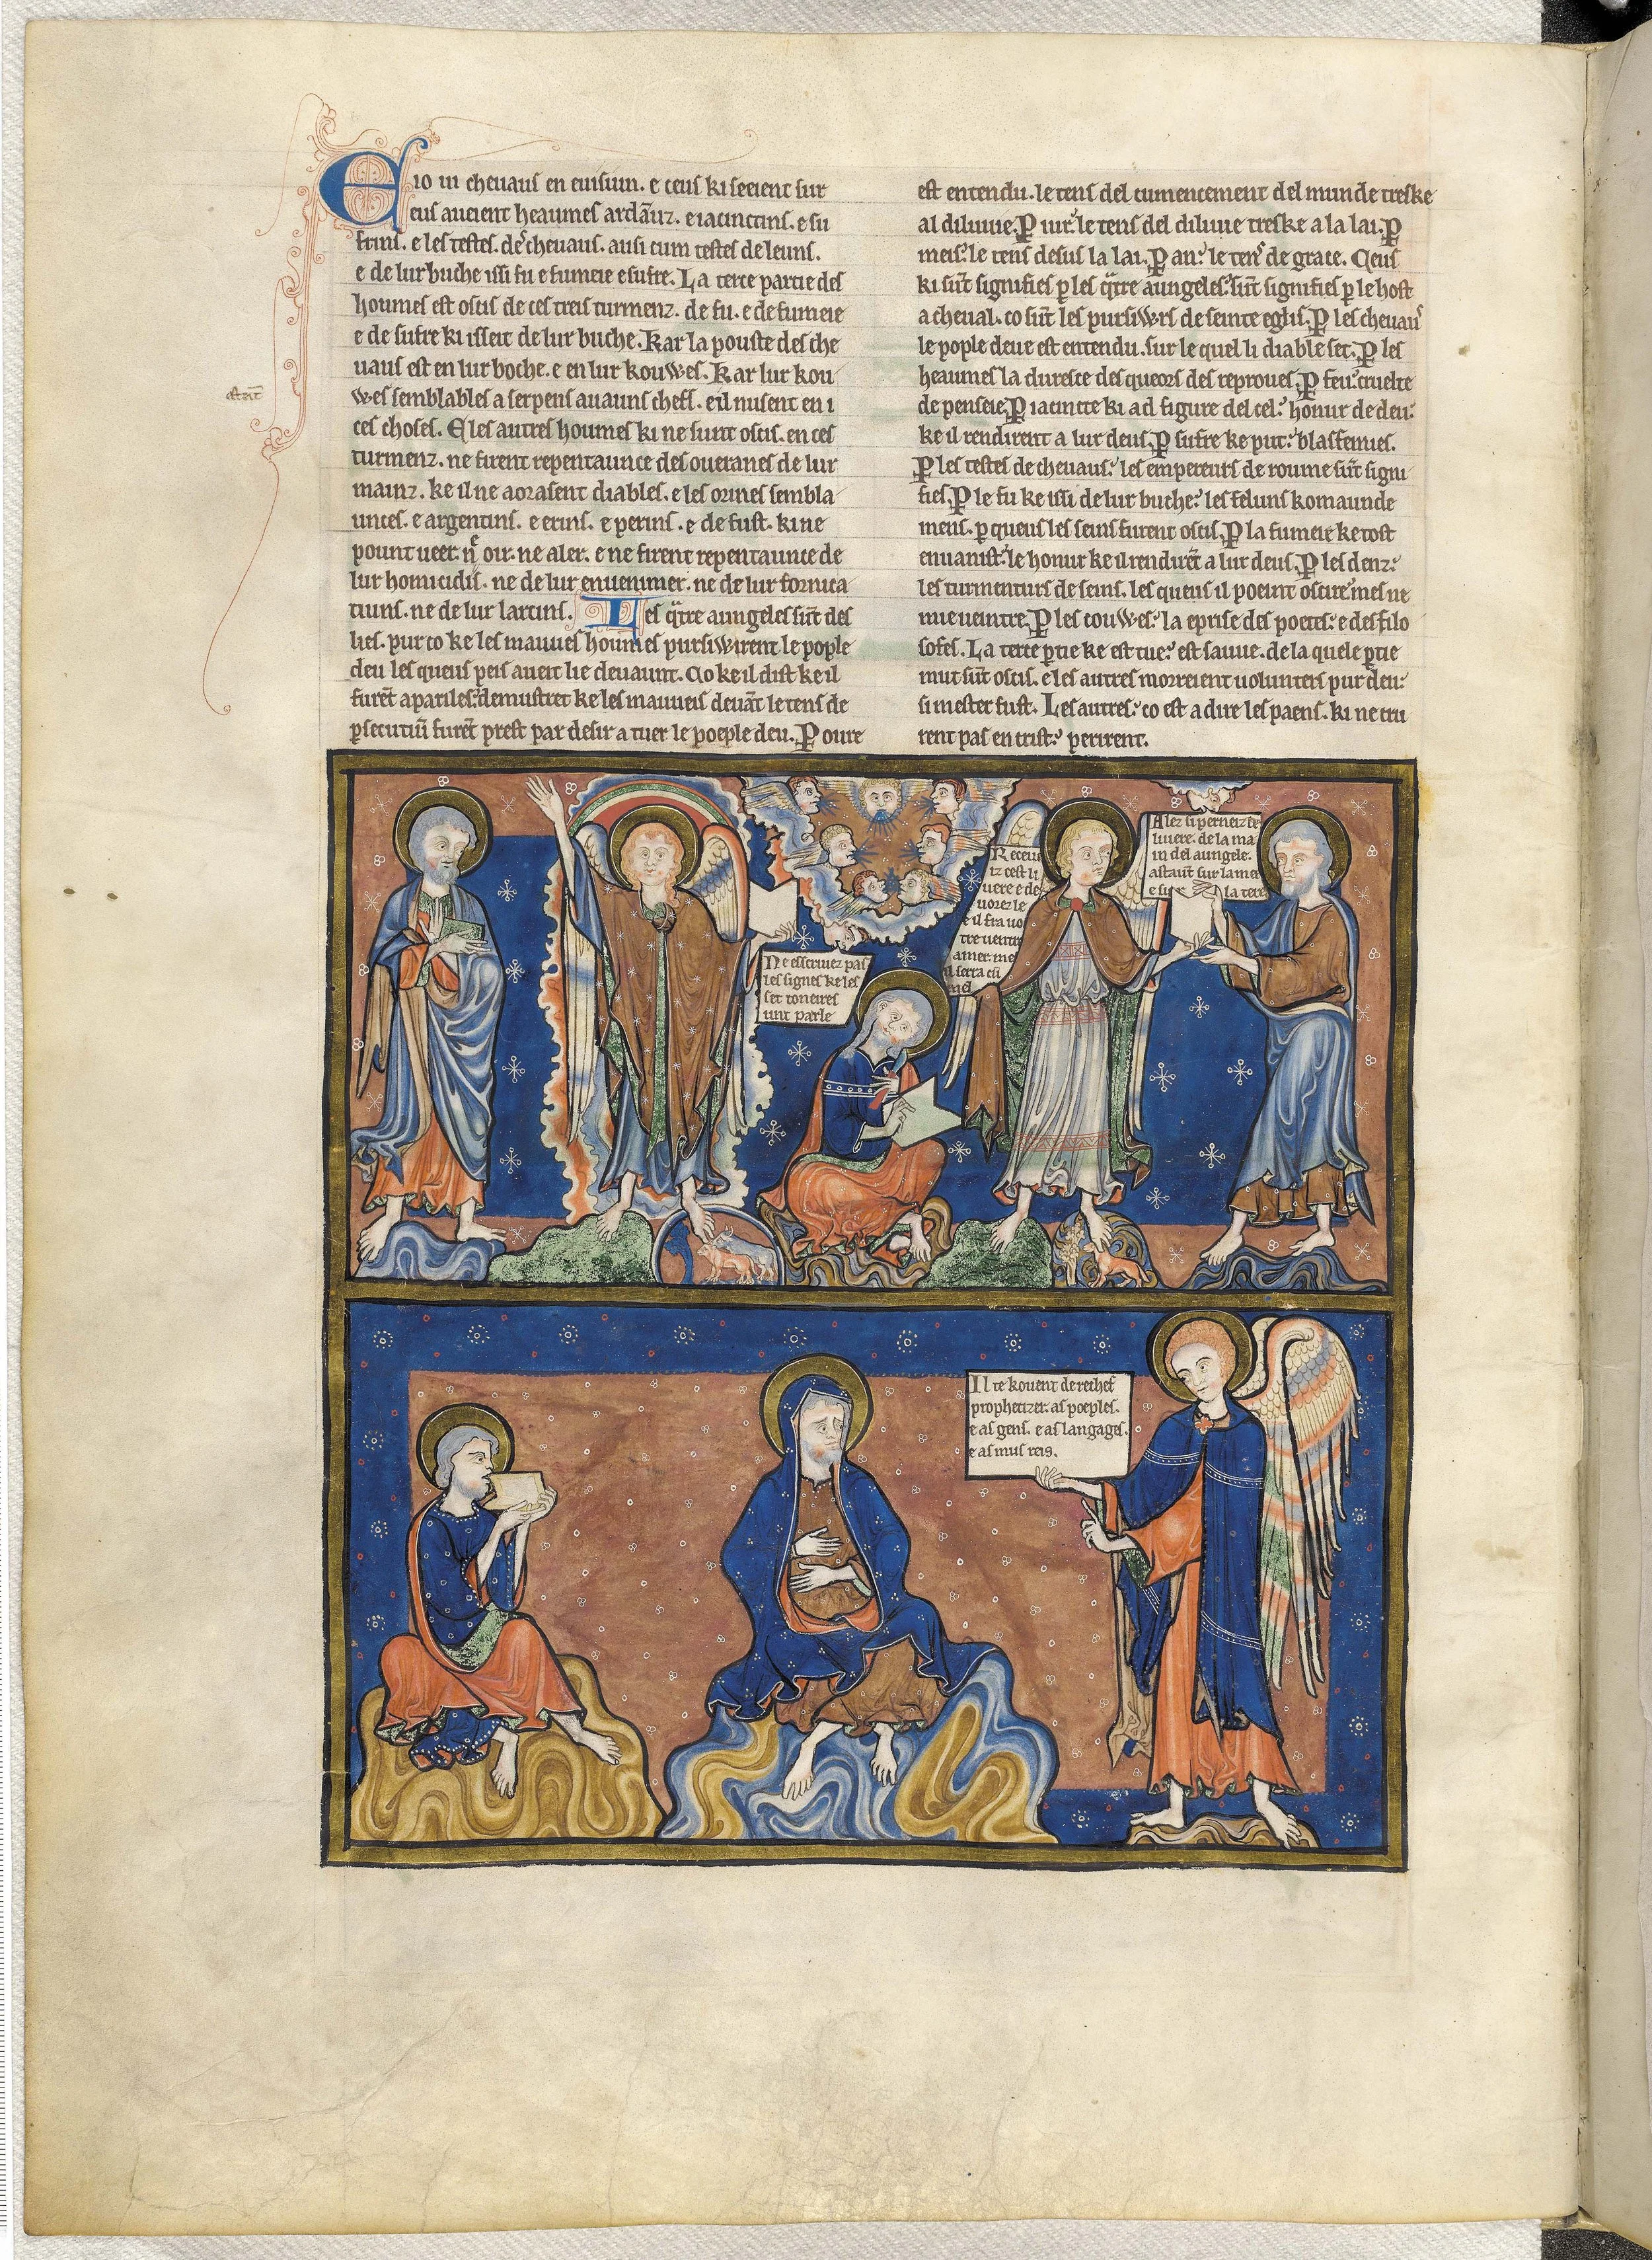 E io ui cheuaus en euisiun. e ceus ki seeient sur
eus aueient heaumes ardãuz. e iacinctins. e su
frins. e les testes. de cheuaus. ausi cum testes de leuns.
e de lur buche issi fu e fumeie e sufre. La terce partie des
houmes est oscis de ces treis turmenz. de fu. e de fumeie
e de sufre ki isseit de lur buche. Kar la pouste des che
uaus est en lur boche. e en lur kouwes. Kar lur kou
wes semblables a serpens auauns cheff. e il nusent en i
astrit
ces choses. E les autres houmes ki ne sunt oscis. en ces
turmenz. ne firent repentaunce des oueranes de lur
mainz. ke il ne aorasent diables. e les orines sembla
unces. e argentins. e erins. e perins. e de fust. ki ne
pount ueer. ne oir. ne aler. e ne firent repentaunce de
lur homicidis. ne de lur enuenimer. ne de lur fornica
tiuns. ne de lur larcins. Les qtre aungeles sũt des
lies. pur co ke les mauues houmes pursiwirent le pople
deu les queus peis aueit lie deuaunt. Co ke il dist ke il
furẽt apariles: demustret ke les mauueis deuãt le tens de
psecutiũ furẽt prest par desir a tuer le poeple deu. P oure
est entendu. le tens del cumencement del munde treske
al diluuie. P iur: le tens del diluuie treske a la lai. P
meis: le tens desus la lai. P an: le tens de grace. Ceus
ki sũt signifies p les qtre aungeles: sũt signifies p le host
a cheual. co sũt les pursiwrs de seinte eglis. P les cheuaus
le pople deue est entendu. sur le quel li diable set. P les
heaumes la duresce des queors des reproues. P feu: cruelte
de penseie. P iacincte ki ad figure del cel: honur de deu:
ke il rendirent a lur deus. P sufre ke put: blasfemies.
P les testes de cheuaus: les empereurs de roume sũt signi
fies. P le fu ke issi de lur buche: les feluns komaunde
mens. p queus les seins furent oscis. P la fumeie ke tost
enuanist: le honur ke il rendirẽt a lur deus. P les denz:
les turmenturs de seins. les queus il poeint oscire: mes ne
mie ueintre. P les couwes: la eprise des poetes: e des filo
sofes. La terce ptie ke est tue: est sauue. de la quele ptie
mut sũt oscis. e les autres morreient uolunters pur deu:
si mester fust. Les autres: co est a dire les paens. ki ne cru
rent pas en crist: perirent.
Ne esscriuez pas
les signes ke les
set toneires
unt parle
Receu
iz cest li
uere e de
uorez le
e il fra uo
tre uentre
amer. me
il serra cũ
mel
Alez si perneiz le
liuere. de la ma
in del aungele.
astaũt sur la mer
e sur la tere
Il te kouent derechef
prophetizer. as poeples.
e as gens. e as langages.
e as mus reis.